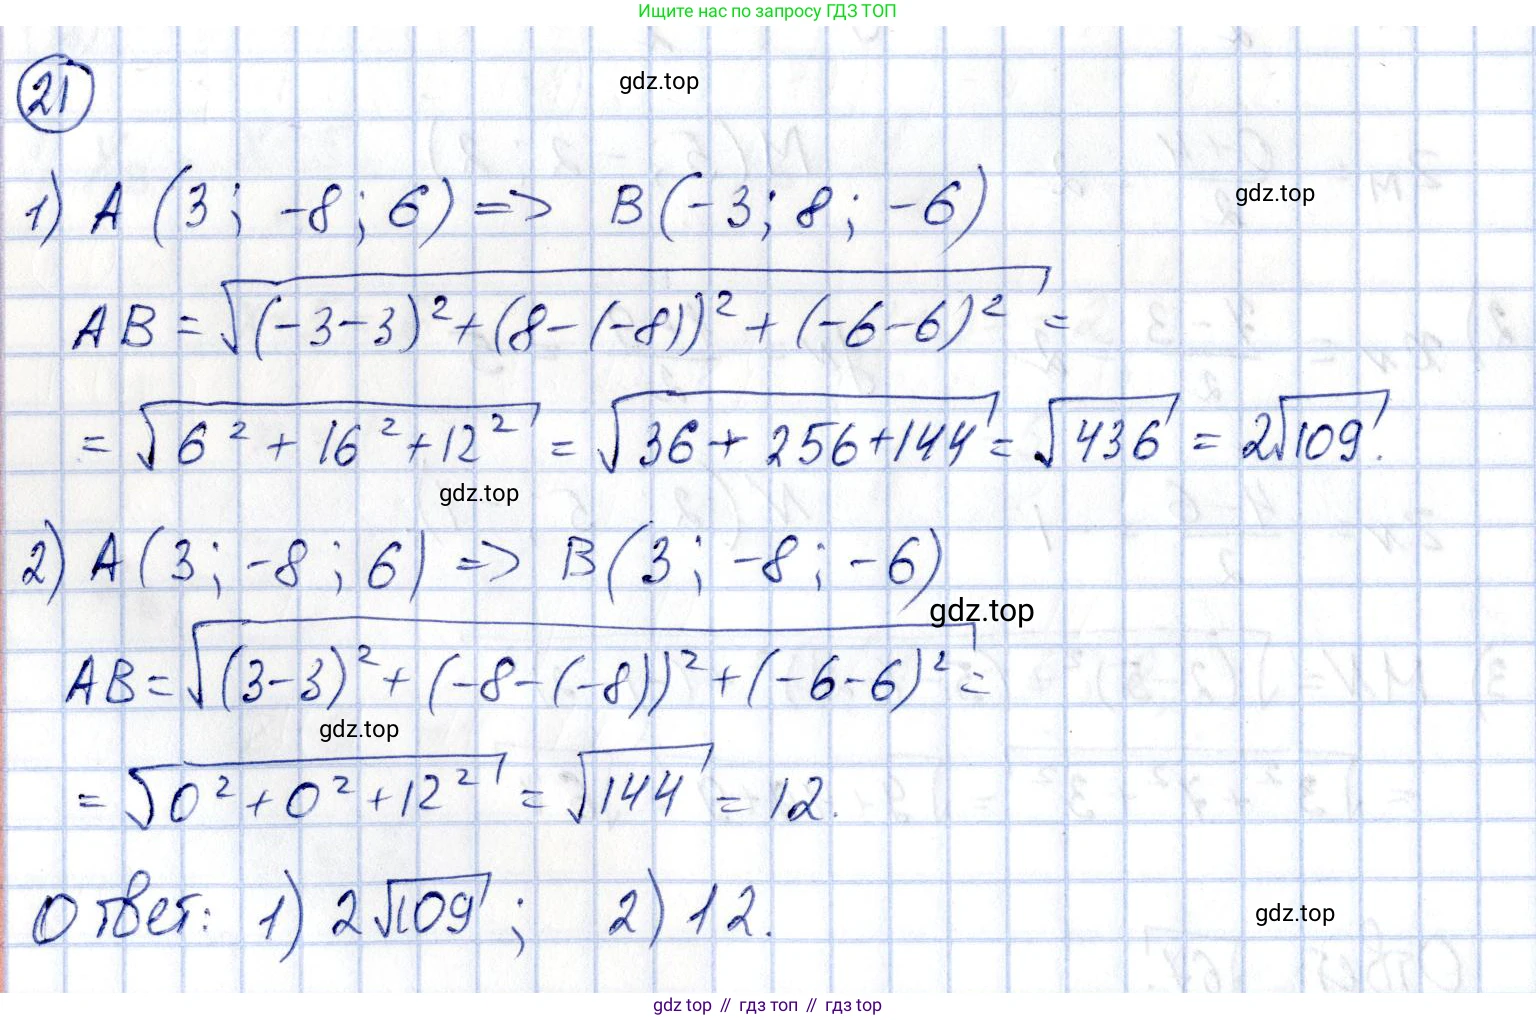 Ищите нас по запросу ГДЗ ТОП
21
gdz.top
1) A (3; -8; 6) => B(-3; 8; -6)
gdz.top
AB = √((-3-3)² + (8-(-8))² + (-6-6)²) =
= √(6² + 16² + 12²) = √(36 + 256 + 144) = √436 = 2√109.
gdz.top
2) A(3; -8; 6) => B(3; -8; -6)
gdz.top
AB = √((3-3)² + (-8-(-8))² + (-6-6)²) =
gdz.top
= √(0² + 0² + 12²) = √144 = 12.
Ответ: 1) 2√109; 2) 12.
gdz.top
gdz top // гдз топ // гдз top